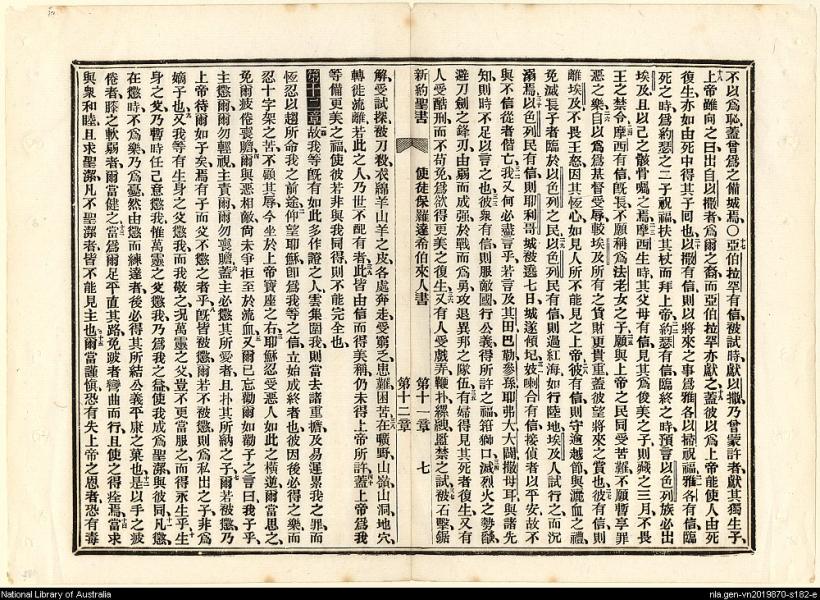 不以爲恥蓋曾爲之備城焉〇亞伯拉罕有信被試時獻以撒乃曾蒙許者獻其獨生子
上帝雖向之曰出自以撒者爲爾之裔而亞伯拉罕亦獻之蓋彼以爲上帝能使人由死
復生亦如由死中得其子同也以撒有信則以將來之事爲雅各以掃祝福雅各有信臨
死之時爲約瑟之二子祝福扶其杖而拜上帝約瑟有信臨終之時預言以色列族必出
埃及且以己之骸骨囑之焉摩西生時其父母有信見其爲俊美之子則藏之三月不畏
王之禁令摩西有信旣長不願稱爲法老女之子願與上帝之民同受苦難不願暫享罪
惡之樂自以爲爲基督受辱較埃及所有之貨財更貴重蓋彼望將來之賞也彼有信則
離埃及不畏王怒因其恆心如見人所不能見之上帝彼有信則守逾越節與灑血之禮
免滅長子者臨於以色列之民以色列民有信則過紅海如行陸地埃及人試行之而沉
溺焉以色列民有信則耶利哥城被遶七日城遂傾圮妓喇合有信接偵者以平安故不
與不信從者偕亡我又何必盡言乎若言及其田巴勒參孫耶弗大大闢撒母耳與諸先
知則時不足以言之也彼衆有信則服敵國行公義得所許之福箝獅口滅烈火之勢
避刀劍之鋒刃由弱而成強於戰而爲勇攻退異邦之隊伍有婦得見其死者復生又有
人受酷刑而不苟免爲欲得更美之復生又有人受戲弄鞭扑縲絏監禁之試被石擊鋸
新約聖書
使徒保羅達希伯來人書
第十一章
第十二章
七
解受試探被刀殺衣綿羊山羊之皮各處奔走受窮乏患難困苦在曠野山嶺山洞地穴
轉徙流離若此之人乃世不配有者此皆由信而得美稱仍未得上帝所許蓋上帝爲我
等備更美之福使彼若非與我同得則不能完全也
第十二章故我等旣有如此多作證之人雲集圍我則當去諸重擔及易遲累我之罪而
恆忍以趨所命我之前途仰望耶穌卽爲我等之信立始成終者也彼因後必得之樂而
忍十字架之苦不顧其辱今坐於上帝寶座之右耶穌忍受惡人如此之橫逆爾當思之
免爾疲倦喪膽爾與惡相敵尙未爭拒至於流血又爾已忘勸爾如勸子之言曰我子乎
主懲爾爾勿輕視主責爾爾勿喪膽蓋主必懲其所愛者且扑其所納之子爾若被懲乃
上帝待爾如子矣焉有子而父不懲之者乎旣皆被懲爾若不被懲則爲私出之子非爲
嫡子也又我等有生身之父懲我而我敬之況萬靈之父豈不更當服之而得永生乎生
身之父乃暫時任己意懲我惟萬靈之父懲我乃爲我之益使我成爲聖潔與彼同凡懲
在懲時不爲樂乃爲憂然由懲而練達者後必得其所結公義平康之菓也是以手之疲
倦者膝之軟弱者爾當健之當爲爾足平直其路免跛者彎曲而行且使之得痊焉當求
與衆和睦且求聖潔凡不聖潔者皆不能見主也爾當謹愼恐有失上帝之恩者恐有毒
National Library of Australia
nla.gen-vn2019870-s182-e